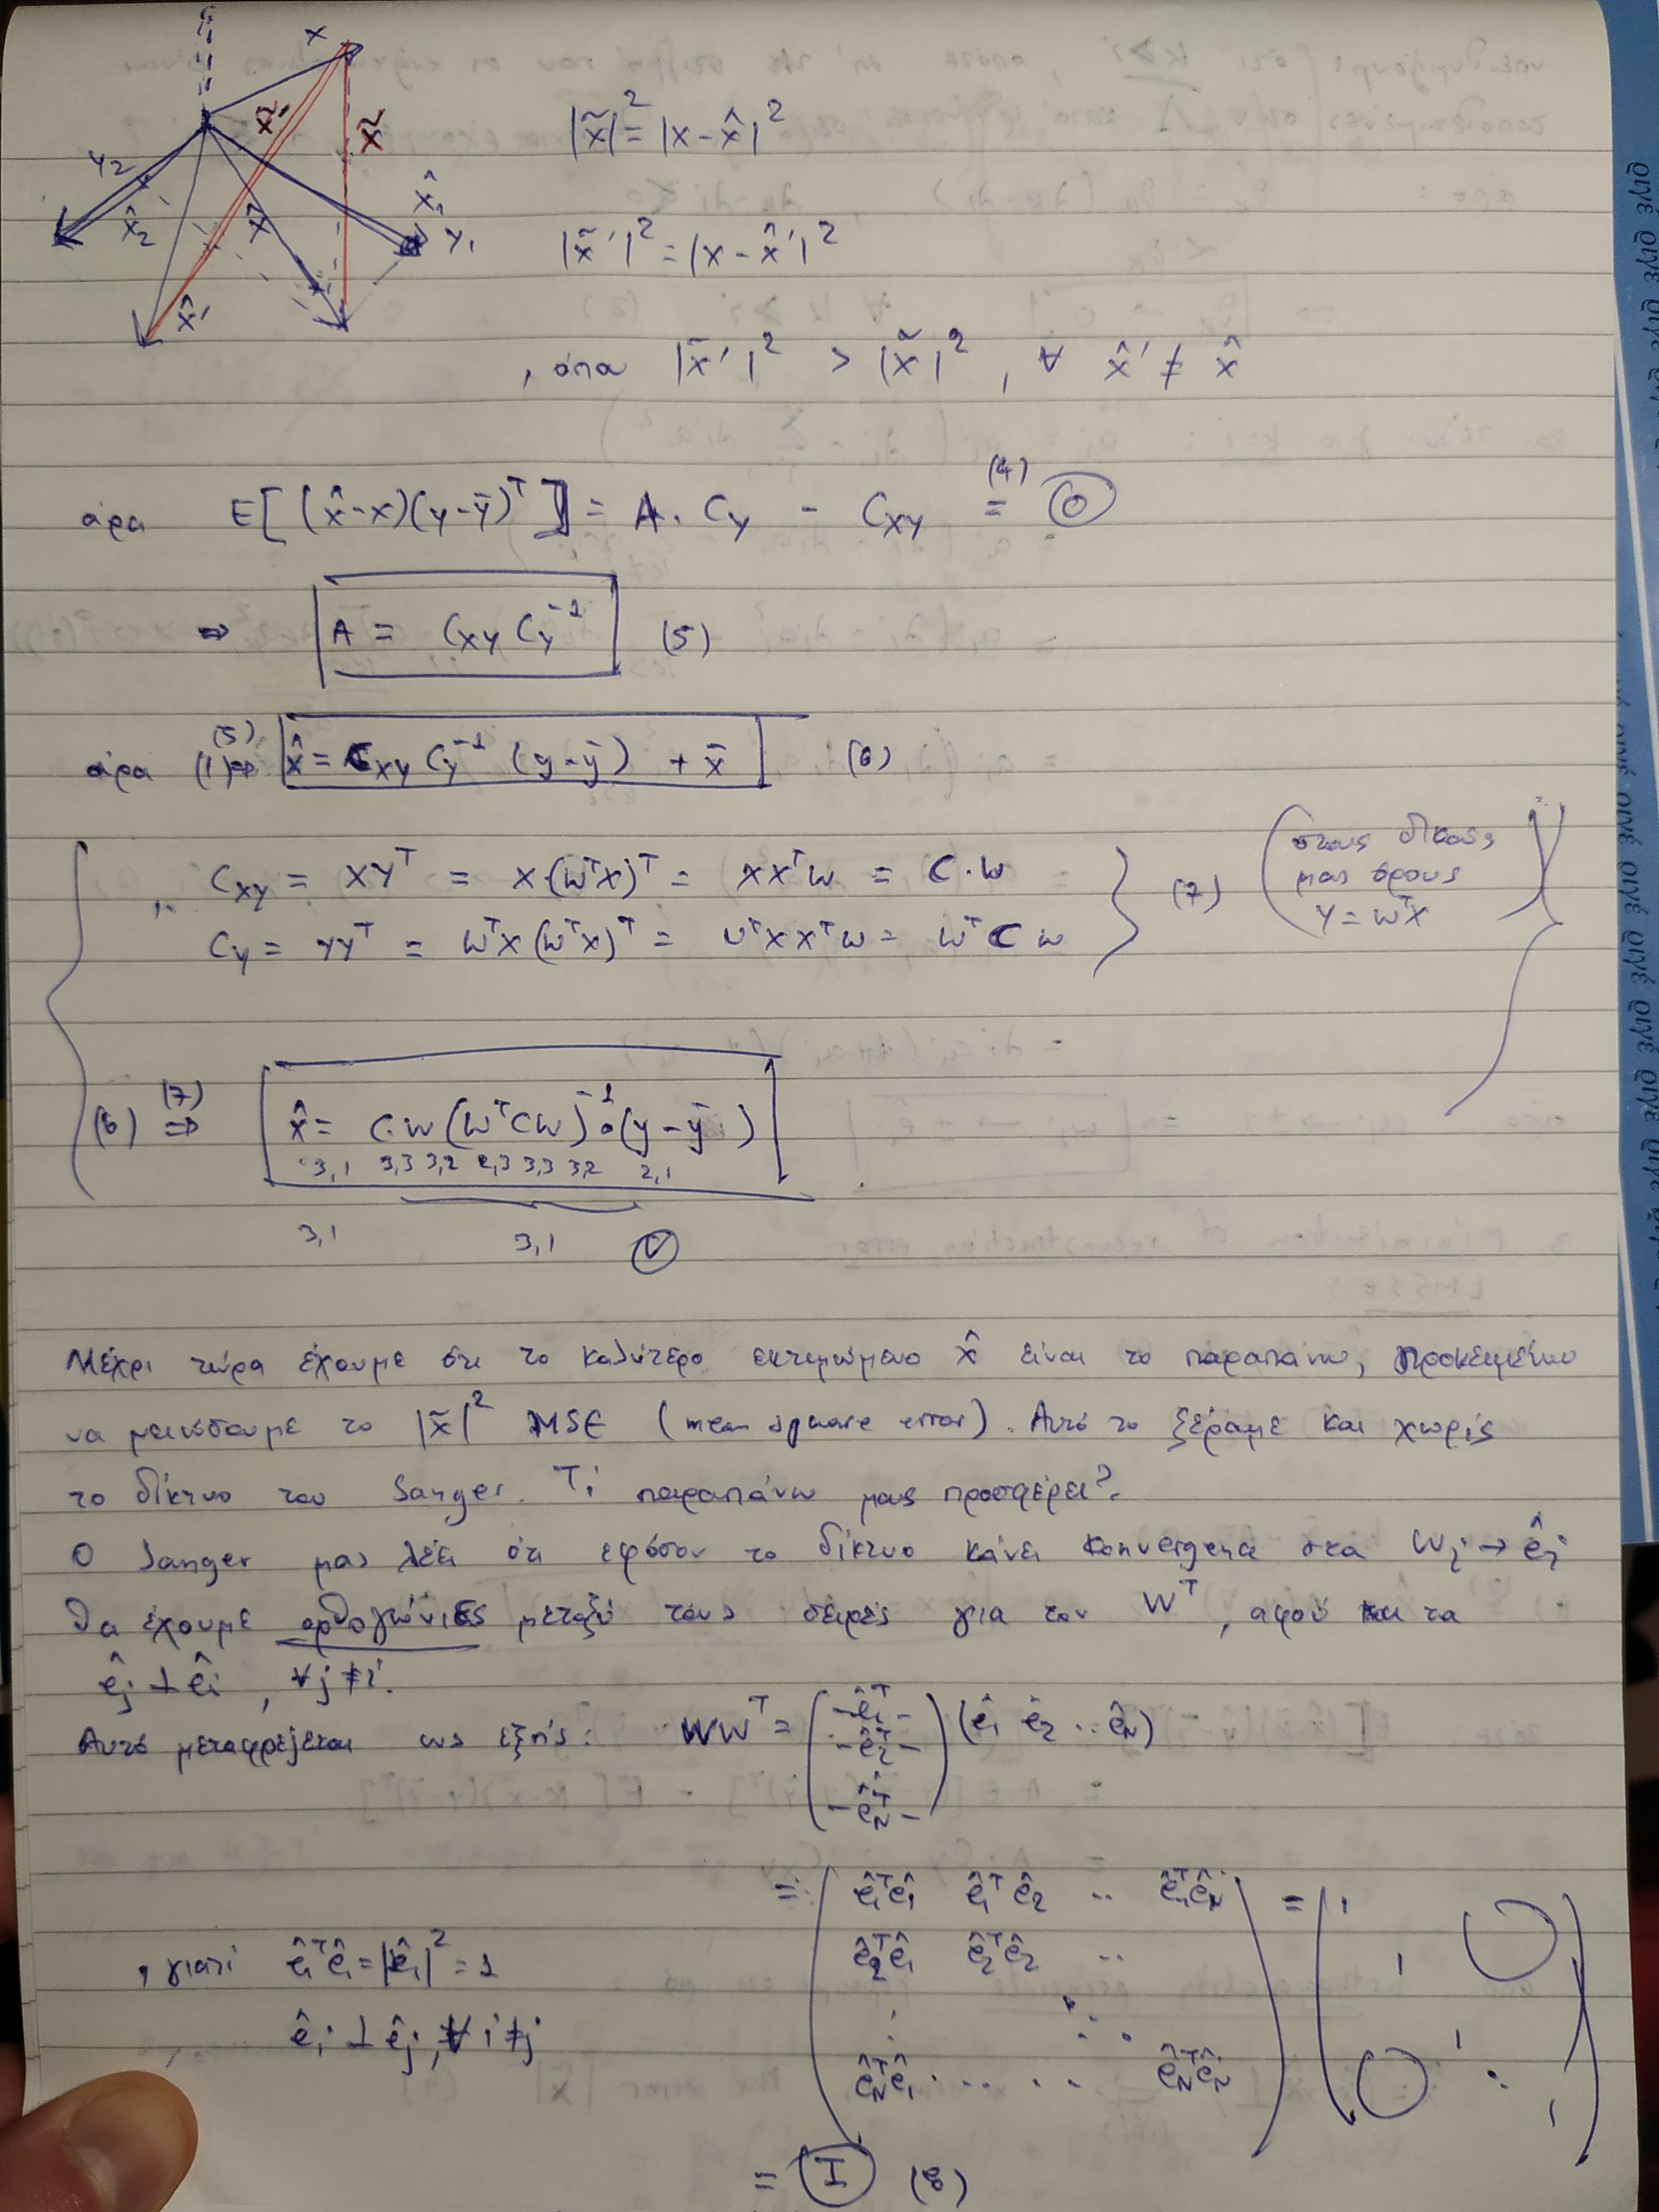 x
x̃'
x̃
y₂
x̂₂
x̂
x̂₁
y₁
x̂'
|x̃|² = |x - x̂|²
|x̃'|² = |x - x̂'|²
, όπου |x̃'|² > |x̃|² , ∀ x̂' ≠ x̂
άρα E[(x̂-x)(y-ȳ)ᵀ] = A. C_y - C_xy =⁽⁴⁾ 0
⇒ A = C_xy C_y⁻¹ (5)
άρα (1) ⇒⁽⁵⁾ x̂ = C_xy C_y⁻¹ (y-ȳ) + x̄ (6)
C_xy = XYᵀ = X(WᵀX)ᵀ = XXᵀW = C.W
C_y = YYᵀ = WᵀX(WᵀX)ᵀ = WᵀXXᵀW = WᵀCW
(7)
(στους δικούς
μας όρους
Y = WᵀX)
(6) ⇒⁽⁷⁾ x̂ = C.W(WᵀCW)⁻¹.(y-ȳ)
3,1 3,3 3,2 2,3 3,3 3,2 2,1
3,1 3,1 ✓
Μέχρι τώρα έχουμε ότι το καλύτερο εκτιμώμενο x̂ είναι το παραπάνω, προκειμένου
να μειώσουμε το |x̃|² MSE (mean square error). Αυτό το ξέραμε και χωρίς
το δίκτυο του Sanger. Τι παραπάνω μας προσφέρει?
Ο Sanger μας λέει ότι εφόσον το δίκτυο κάνει convergence στα Wⱼ → êⱼ
θα έχουμε ορθογώνιες μεταξύ τους σειρές για τον Wᵀ, αφού και τα
êⱼ ⊥ êᵢ , ∀j≠i.
Αυτό μεταφράζεται ως εξής: WWᵀ = (-ê₁ᵀ-
-ê₂ᵀ-
⋮
-ê_Nᵀ-) (ê₁ ê₂ .. ê_N)
= (ê₁ᵀê₁ ê₁ᵀê₂ .. ê₁ᵀê_N
ê₂ᵀê₁ ê₂ᵀê₂ ..
⋮ ⋱
ê_Nᵀê₁ . . . . . ê_Nᵀê_N) = (1 0
1
0 1 ⋱
1)
, γιατί ê₁ᵀê₁ = |ê₁|² = 1
êᵢ ⊥ êⱼ, ∀ i≠j
= I (8)